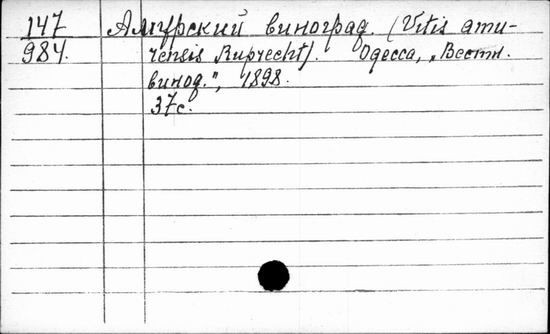 147 Амурский виноград. (Vitis amu-
984. rensis Ruprecht). Одесса, „Вестн.
виног.", 1898.
37с.